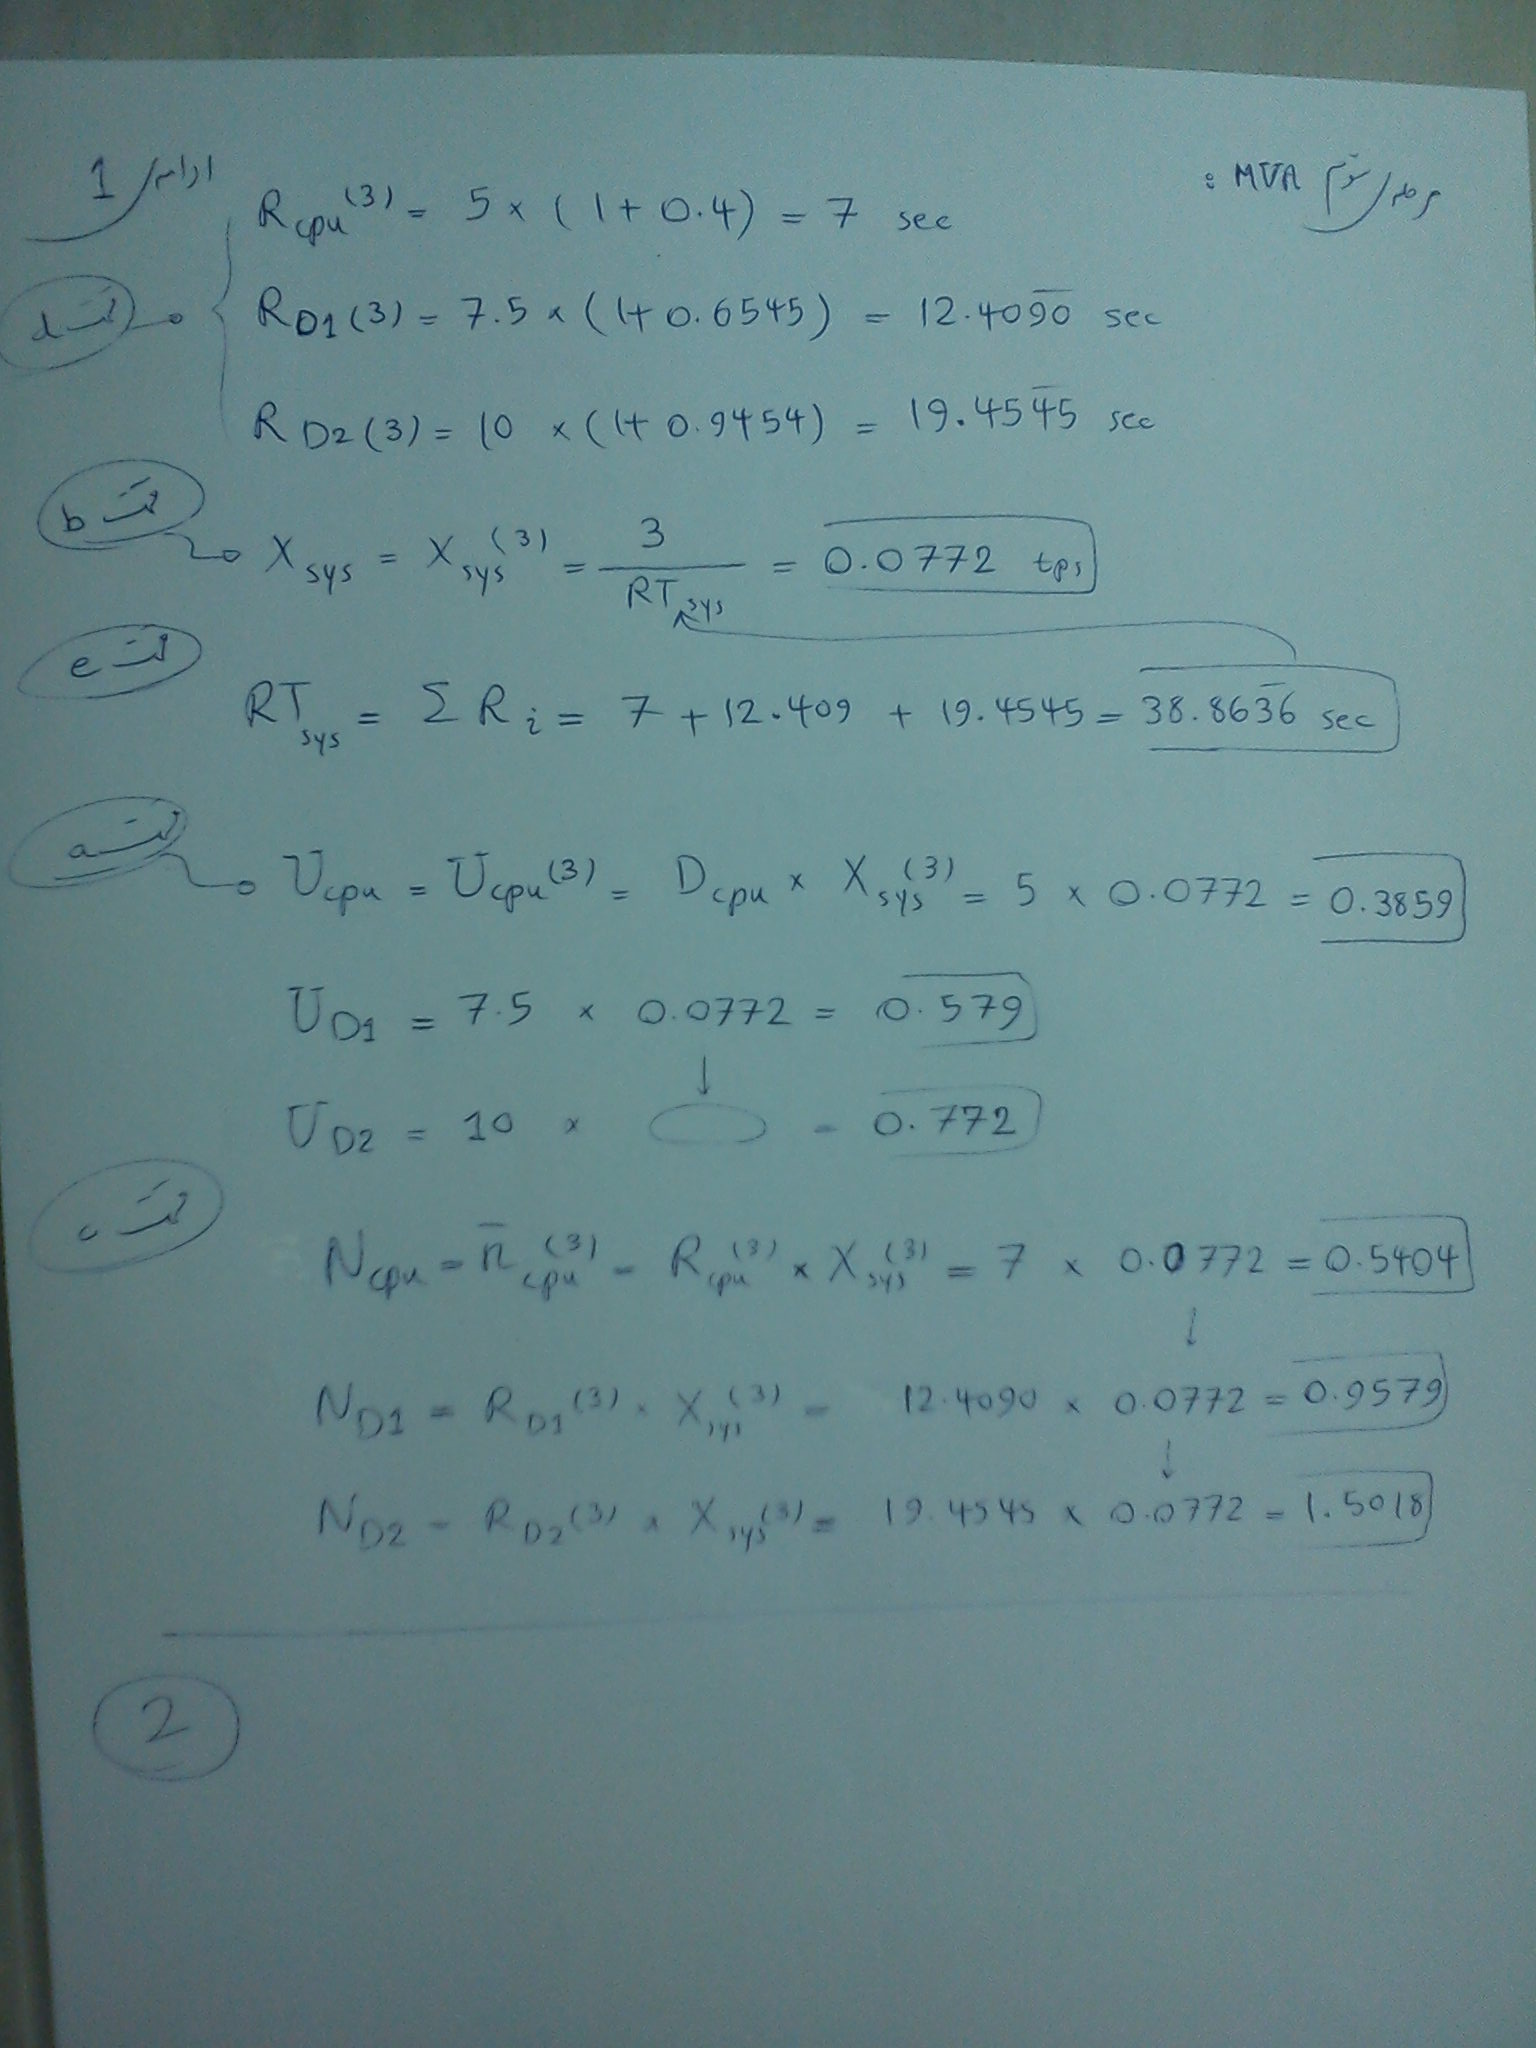 ادامه 1
مرحله سوم MVA :
Rcpu(3) = 5 × (1+0.4) = 7 sec
قسمت d
RD1(3) = 7.5 × (1+0.6545) = 12.4090 sec
RD2(3) = 10 × (1+0.9454) = 19.4545 sec
قسمت b
Xsys = Xsys(3) = 3 / RTsys = 0.0772 tps
قسمت e
RTsys = Σ Ri = 7 + 12.409 + 19.4545 = 38.8636 sec
قسمت a
Ucpu = Ucpu(3) = Dcpu × Xsys(3) = 5 × 0.0772 = 0.3859
UD1 = 7.5 × 0.0772 = 0.579
UD2 = 10 × = 0.772
قسمت c
Ncpu = n̄cpu(3) = Rcpu(3) × Xsys(3) = 7 × 0.0772 = 0.5404
ND1 = RD1(3) × Xsys(3) = 12.4090 × 0.0772 = 0.9579
ND2 = RD2(3) × Xsys(3) = 19.4545 × 0.0772 = 1.5018
2